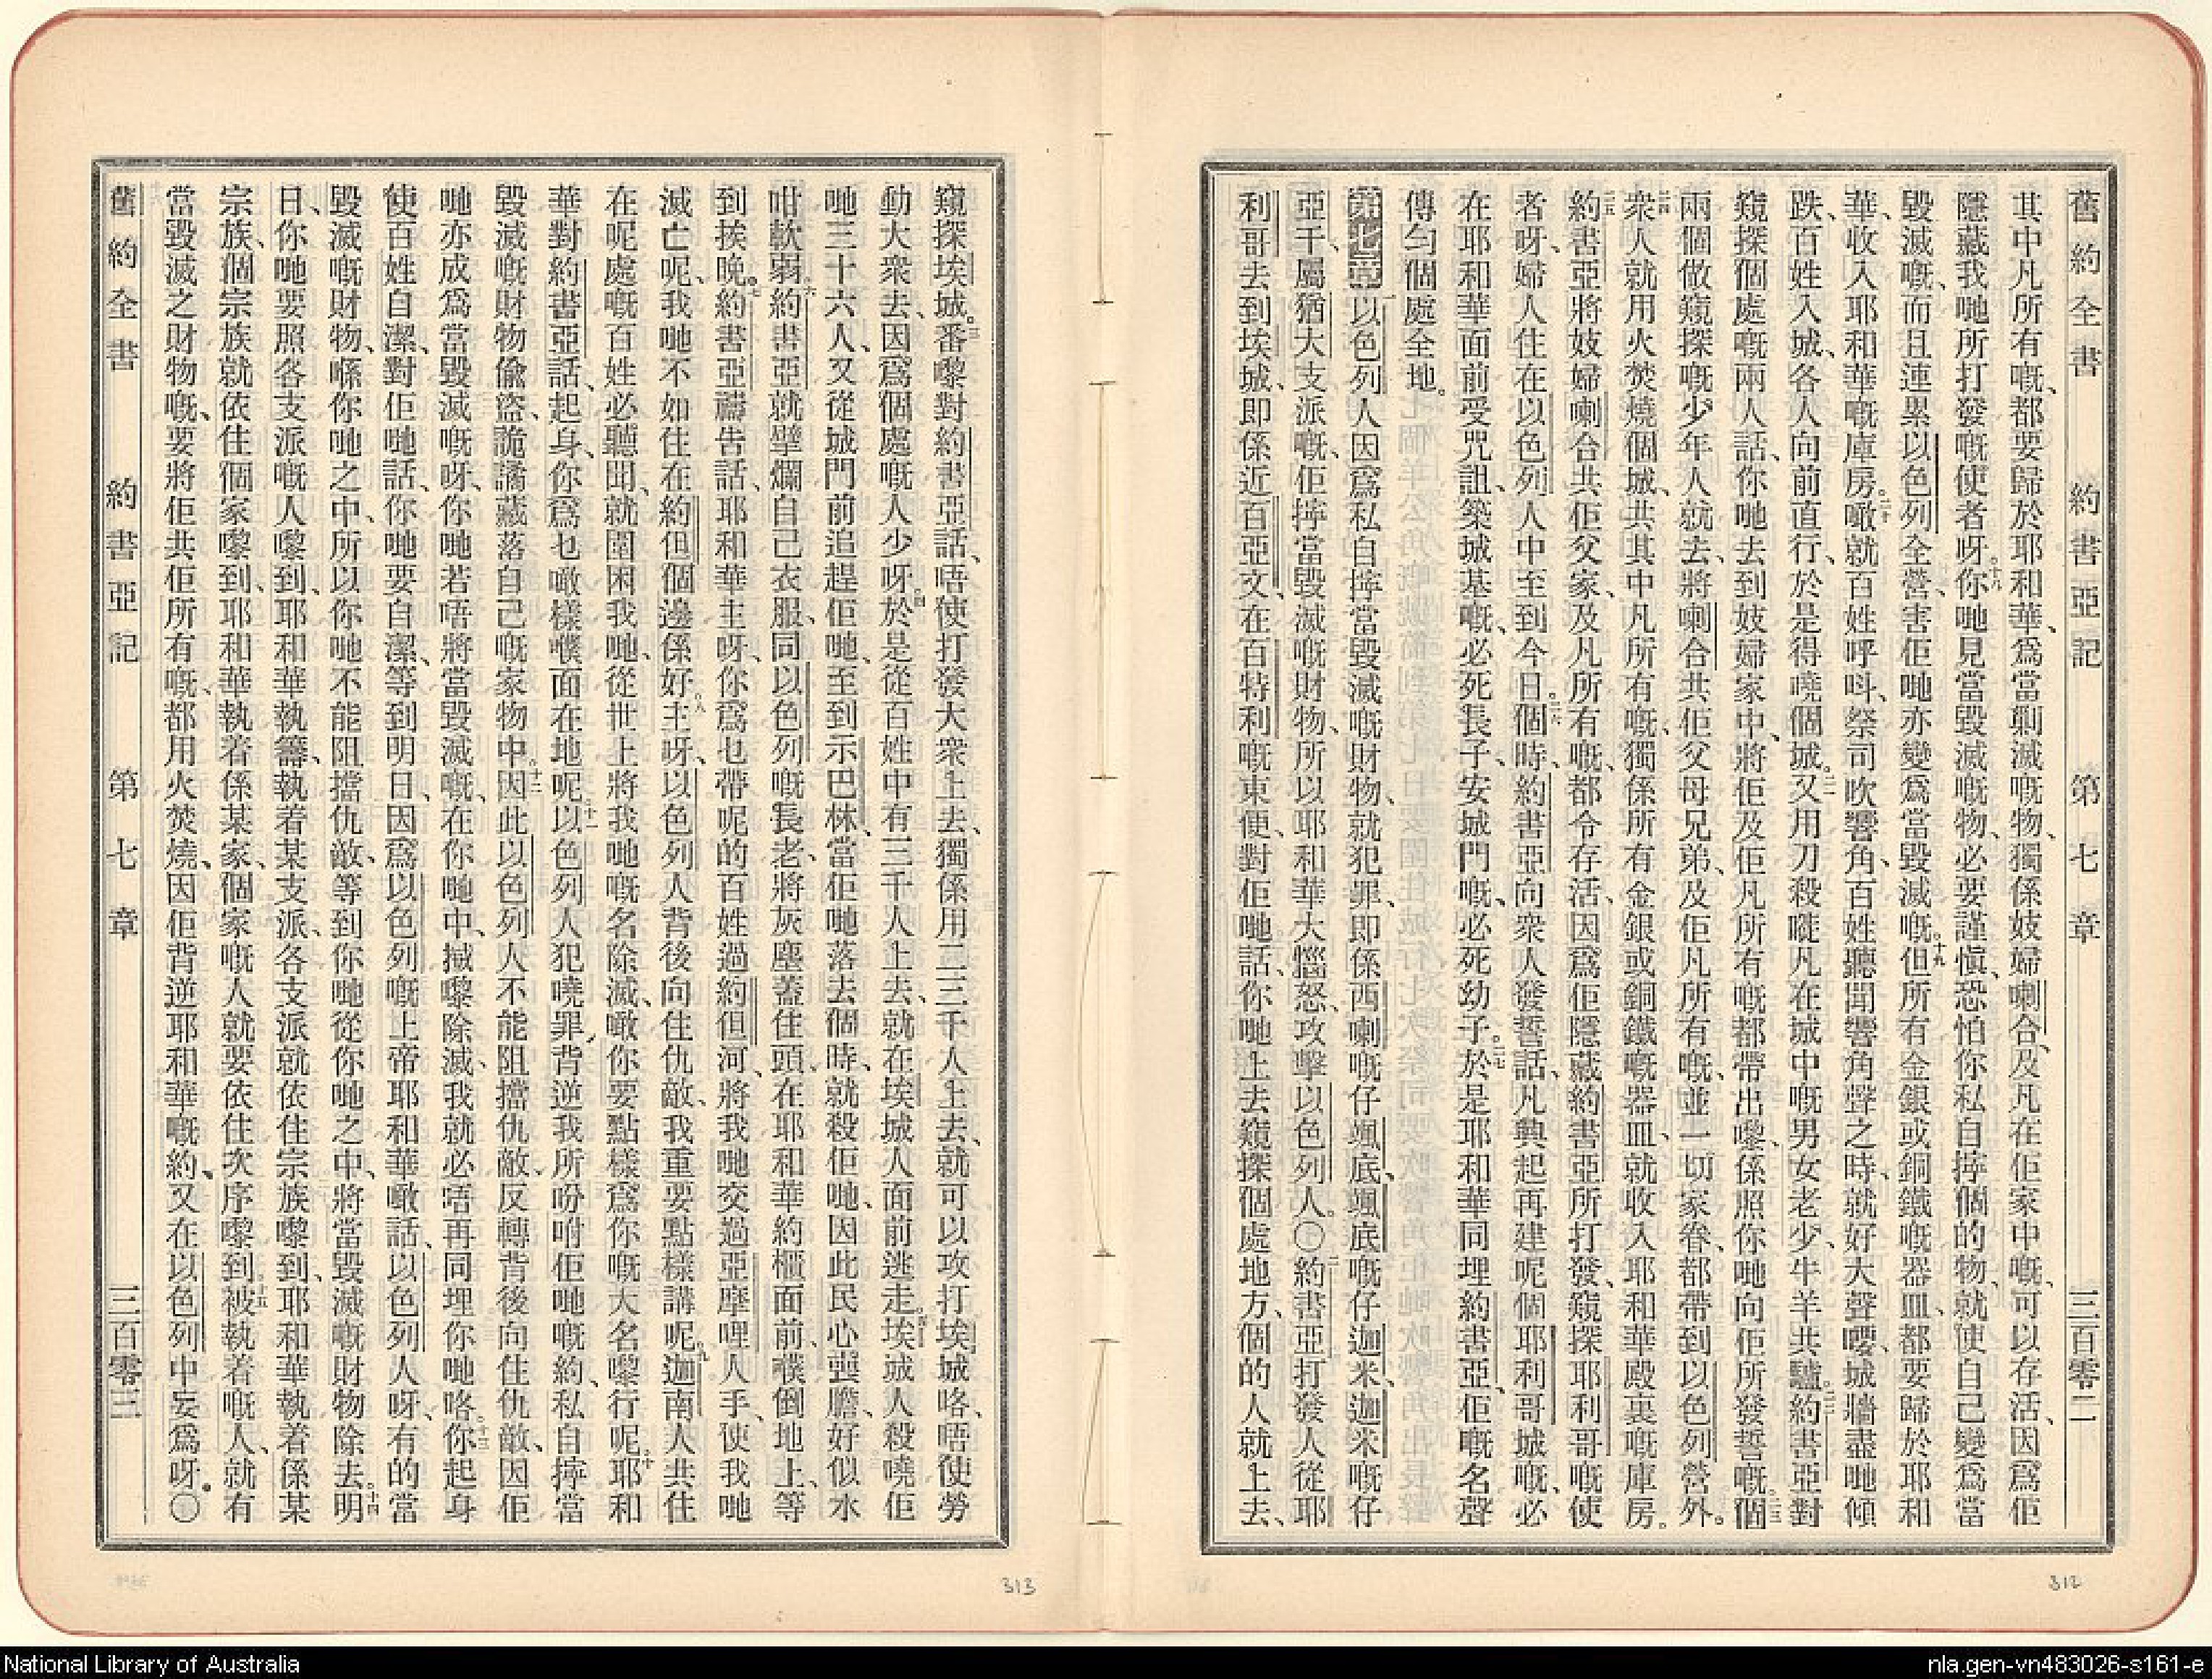 舊約全書 約書亞記 第七章 三百零二
其中凡所有嘅、都要歸於耶和華、爲當剿滅嘅物、獨係妓婦喇合、及凡在佢家中嘅、可以存活、因爲佢
隱藏我哋所打發嘅使者呀。十八你哋見當毀滅嘅物、必要謹愼、恐怕你私自擰個的物、就使自己變爲當
毀滅嘅、而且連累以色列全營、害佢哋亦變爲當毀滅嘅。十九但所有金銀或銅鐵嘅器皿、都要歸於耶和
華、收入耶和華嘅庫房。二十噉就百姓呼呌、祭司吹響角、百姓聽聞響角聲之時、就好大聲嚶、城牆盡哋傾
跌、百姓入城、各人向前直行、於是得嘵個城。二一又用刀殺嘥凡在城中嘅男女老少、牛羊共驢。二二約書亞對
窺探個處嘅兩人話、你哋去到妓婦家中、將佢及佢凡所有嘅都帶出嚟、係照你哋向佢所發誓嘅。二三個
兩個做窺探嘅少年人就去、將喇合共佢父母兄弟、及佢凡所有嘅、並一切家眷、都帶到以色列營外。
二四衆人就用火焚燒個城、共其中凡所有嘅、獨係所有金銀或銅鐵嘅器皿、就收入耶和華殿裏嘅庫房。
二五約書亞將妓婦喇合共佢父家、及凡所有嘅、都令存活、因爲佢隱藏約書亞所打發、窺探耶利哥嘅使
者呀、婦人住在以色列人中至到今日。二六個時、約書亞向衆人發誓話、凡興起再建呢個耶利哥城嘅、必
在耶和華面前受咒詛、築城基嘅、必死長子、安城門嘅、必死幼子。二七於是耶和華同埋約書亞、佢嘅名聲
傳勻個處全地。
第七章 一以色列人因爲私自擰當毀滅嘅財物、就犯罪、即係西喇嘅仔颯底、颯底嘅仔迦米、迦米嘅仔
亞干、屬猶大支派嘅、佢擰當毀滅嘅財物、所以耶和華大惱怒、攻擊以色列人。〇二約書亞打發人從耶
利哥去到埃城、即係近百亞文、在百特利嘅東便、對佢哋話、你哋上去窺探個處地方、個的人就上去、
312
窺探埃城。三番嚟對約書亞話、唔使打發大衆上去、獨係用二三千人上去、就可以攻打埃城咯、唔使勞
動大衆去、因爲個處嘅人少呀。四於是從百姓中有三千人上去、就在埃城人面前逃走。五埃城人殺嘵佢
哋三十六人、又從城門前追趕佢哋、至到示巴林、當佢哋落去個時、就殺佢哋、因此民心喪膽、好似水
咁軟弱。六約書亞就擘爛自己衣服、同以色列嘅長老、將灰塵蓋住頭、在耶和華約櫃面前、噗倒地上、等
到挨晚。七約書亞禱告話、耶和華主呀、你爲乜帶呢的百姓過約但河、將我哋交過亞摩哩人手、使我哋
滅亡呢、我哋不如住在約但個邊係好。八主呀、以色列人背後向住仇敵、我重要點樣講呢。九迦南人共住
在呢處嘅百姓必聽聞、就圍困我哋、從世上將我哋嘅名除滅、噉你要點樣爲你嘅大名嚟行呢。十耶和
華對約書亞話、起身、你爲乜噉樣噗面在地呢。十一以色列人犯嘵罪、背逆我所吩咐佢哋嘅約、私自擰當
毀滅嘅財物偸盜、詭譎藏落自己嘅家物中。十二因此以色列人不能阻擋仇敵、反轉背後向住仇敵、因佢
哋亦成爲當毀滅嘅呀、你哋若唔將當毀滅嘅、在你哋中、搣嚟除滅、我就必唔再同埋你哋咯。十三你起身
使百姓自潔、對佢哋話、你哋要自潔、等到明日、因爲以色列嘅上帝耶和華噉話、以色列人呀、有的當
毀滅嘅財物、喺你哋之中、所以你哋不能阻擋仇敵、等到你哋從你哋之中、將當毀滅嘅財物除去。十四明
日、你哋要照各支派嘅人嚟到、耶和華執籌、執着某支派、各支派就依住宗族嚟到、耶和華執着係某
宗族、個宗族就依住個家嚟到、耶和華執着係某家、個家嘅人就要依住次序嚟到。十五被執着嘅人、就有
當毀滅之財物嘅、要將佢共佢所有嘅、都用火焚燒、因佢背逆耶和華嘅約、又在以色列中妄爲呀。〇
舊約全書 約書亞記 第七章 三百零三
313
National Library of Australia
nla.gen-vn483026-s161-e